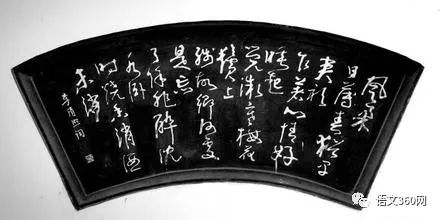 風柔
日薄春猶早
夹衫
乍著心情好
睡起
觉微寒梅花
鬓上
残故鄉何處
是忘
了除非醉沈
水卧
時燒香消酒
未消
李清照詞
语文360网